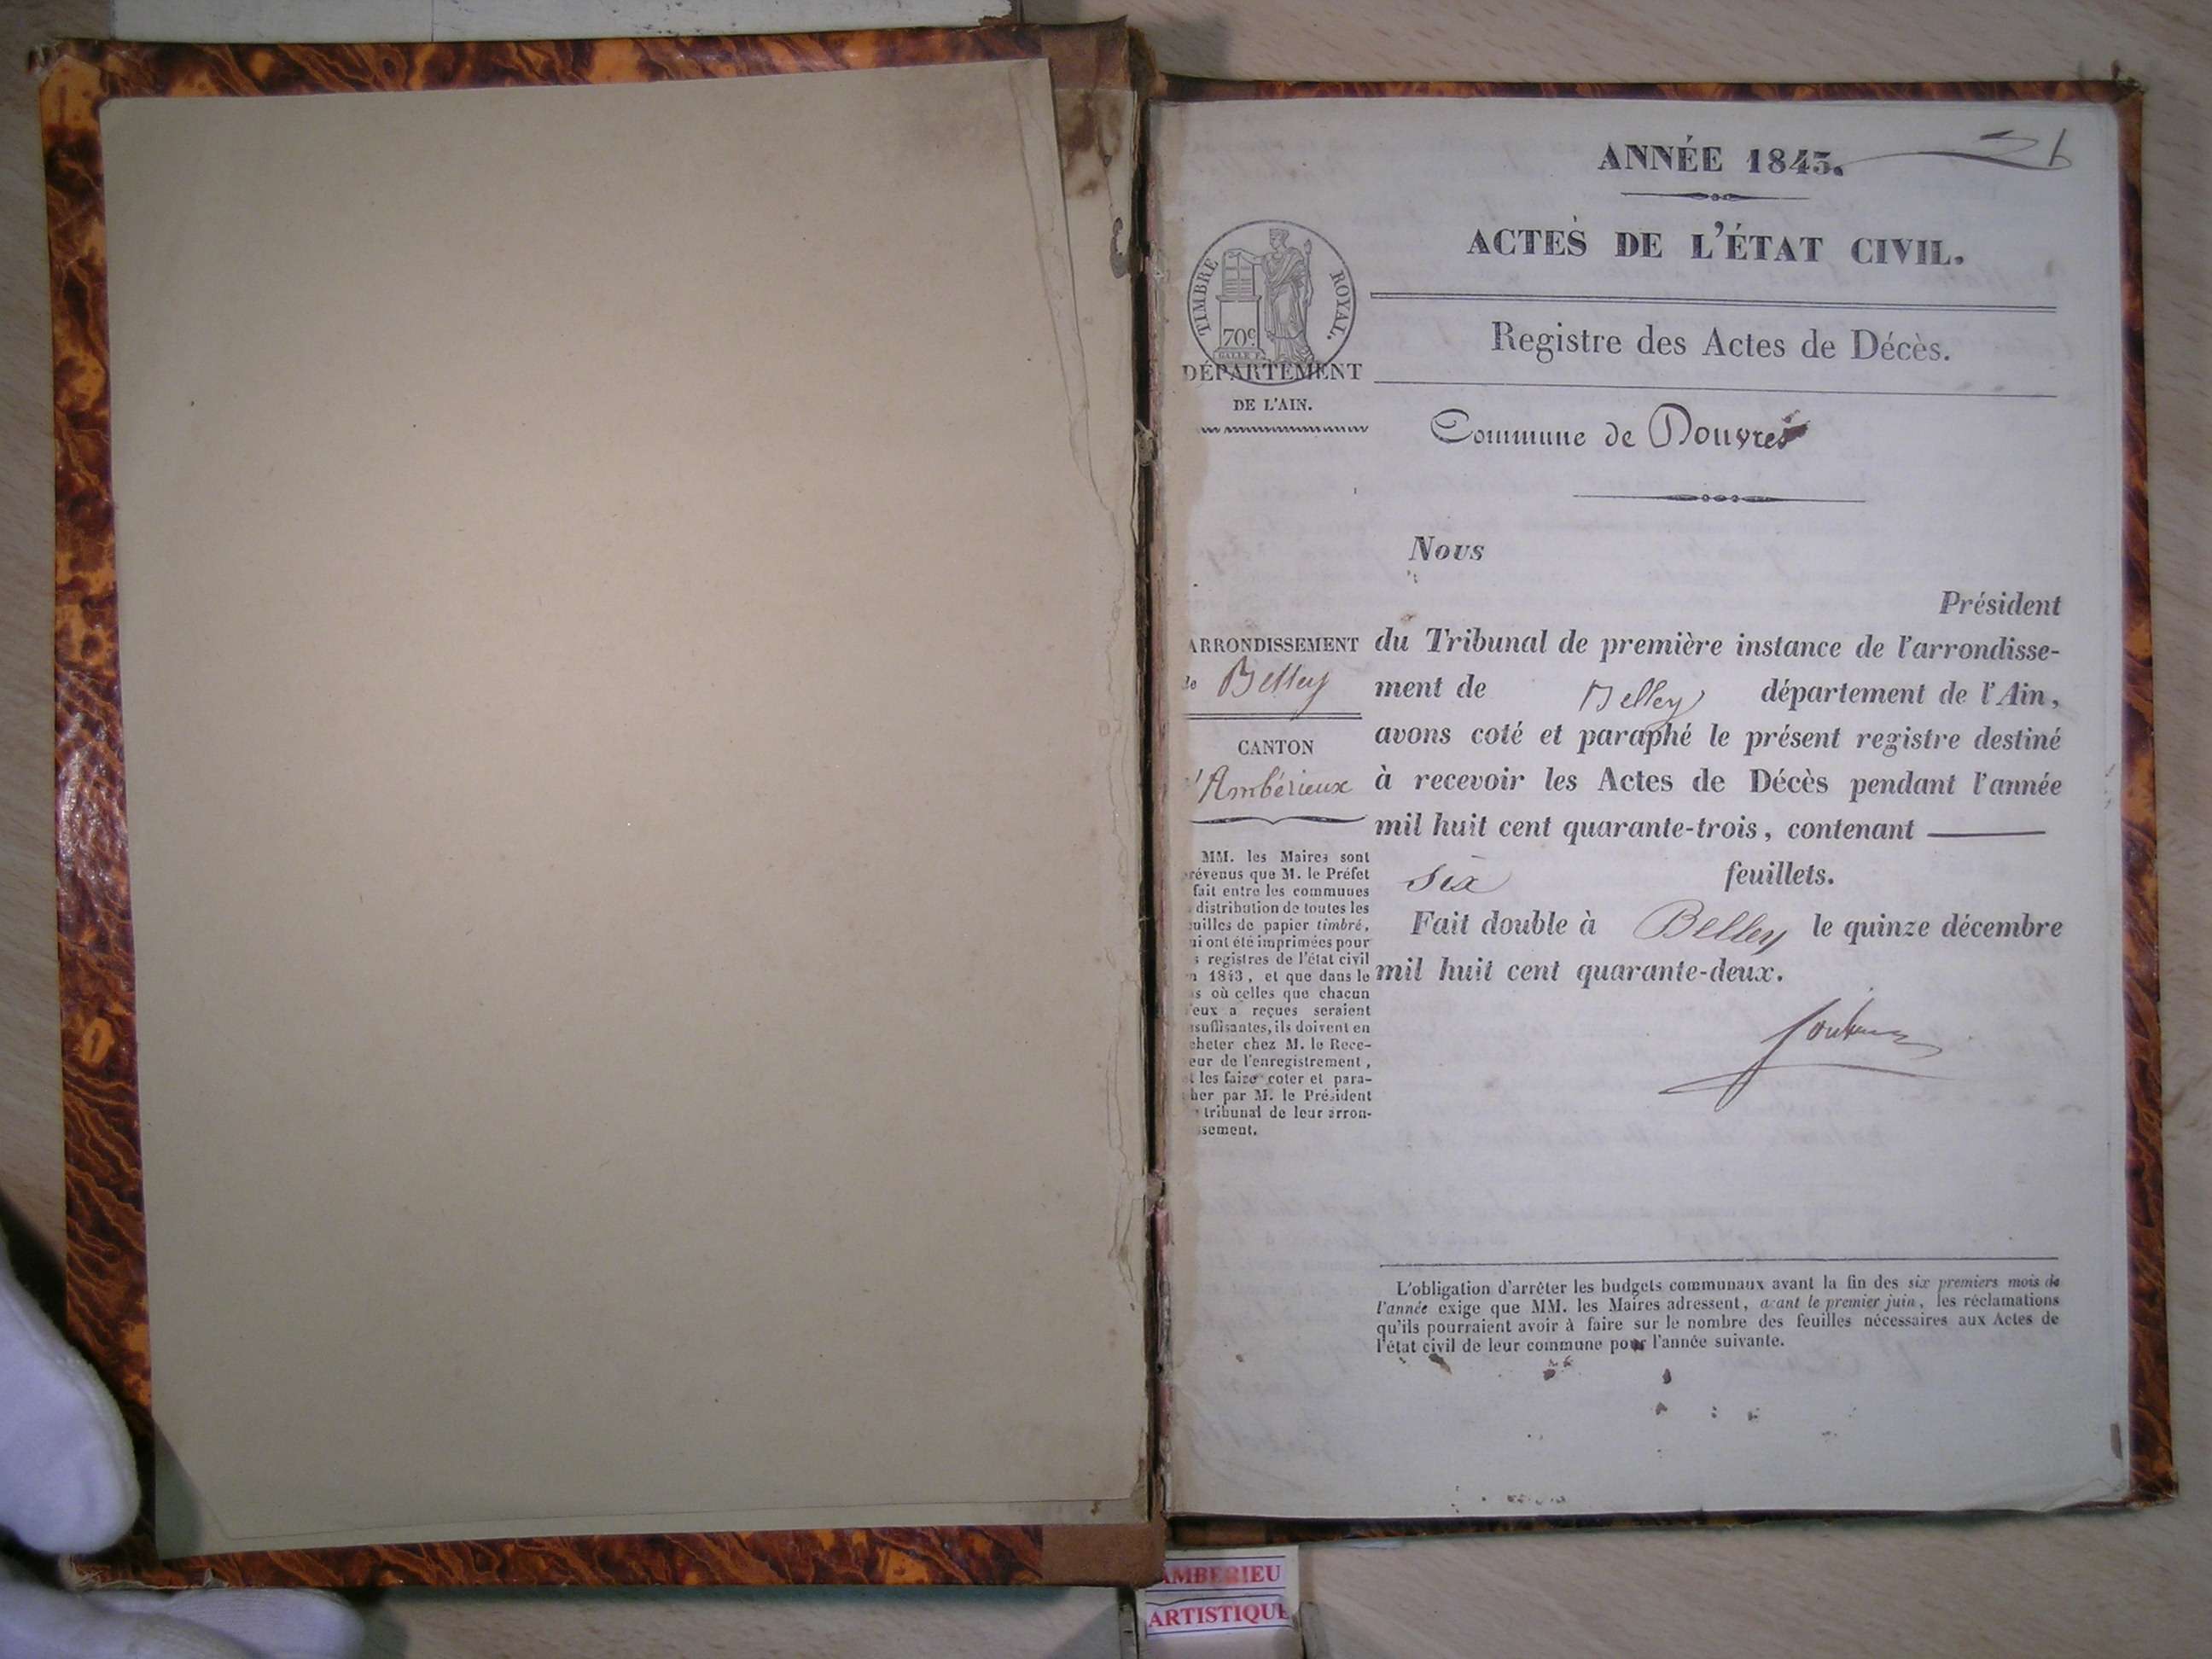 ANNÉE 1843.
ACTES DE L'ÉTAT CIVIL.
TIMBRE ROYAL.
70c
GALLE F.
Registre des Actes de Décès.
DÉPARTEMENT
DE L'AIN.
Commune de Douvres
Nous
Président
du Tribunal de première instance de l'arrondisse-
ment de Belley département de l'Ain,
avons coté et paraphé le présent registre destiné
à recevoir les Actes de Décès pendant l'année
mil huit cent quarante-trois, contenant
six feuillets.
Fait double à Belley le quinze décembre
mil huit cent quarante-deux.
ARRONDISSEMENT
de Belley
CANTON
d'Ambérieux
MM. les Maires sont
prévenus que M. le Préfet
fait entre les communes
distribution de toutes les
feuilles de papier timbré,
qui ont été imprimées pour
s registres de l'état civil
n 1843, et que dans le
s où celles que chacun
'eux a reçues seraient
nsuffisantes, ils doivent en
cheter chez M. le Rece-
eur de l'enregistrement,
t les faire coter et para-
her par M. le Président
tribunal de leur arron-
sement.
L'obligation d'arrêter les budgets communaux avant la fin des six premiers mois de
l'année exige que MM. les Maires adressent, avant le premier juin, les réclamations
qu'ils pourraient avoir à faire sur le nombre des feuilles nécessaires aux Actes de
l'état civil de leur commune pour l'année suivante.
AMBERIEU
ARTISTIQUE